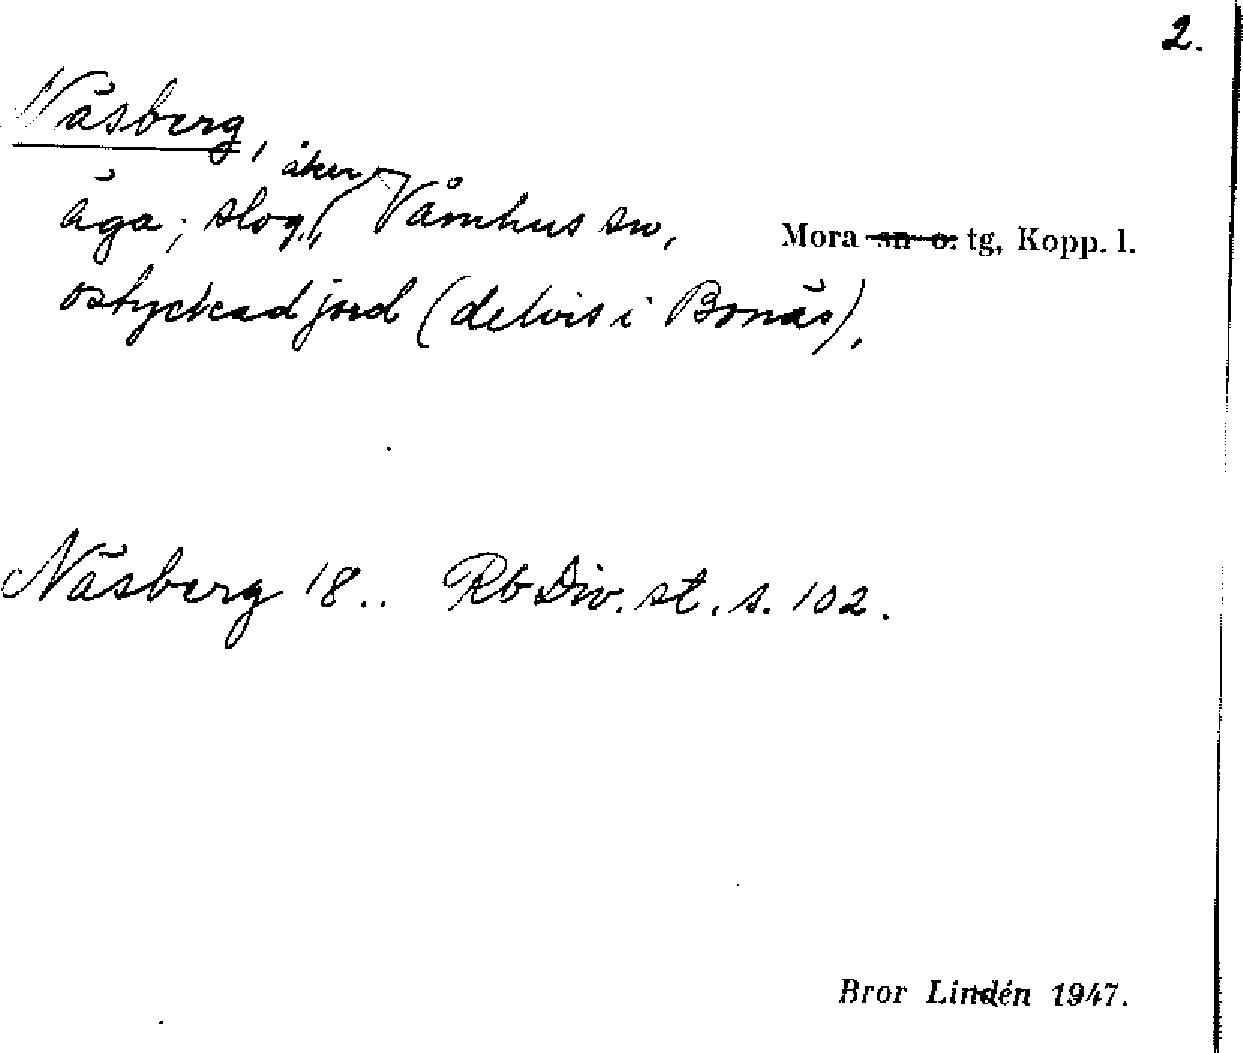 2.
Näsberg,
åker
äga; slog, Våmhus sn, Mora sn o. tg, Kopp. l.
ostyckad jord (delvis i Bonäs),
Näsberg 18.. Rb Div. st. s. 102.
Bror Lindén 1947.